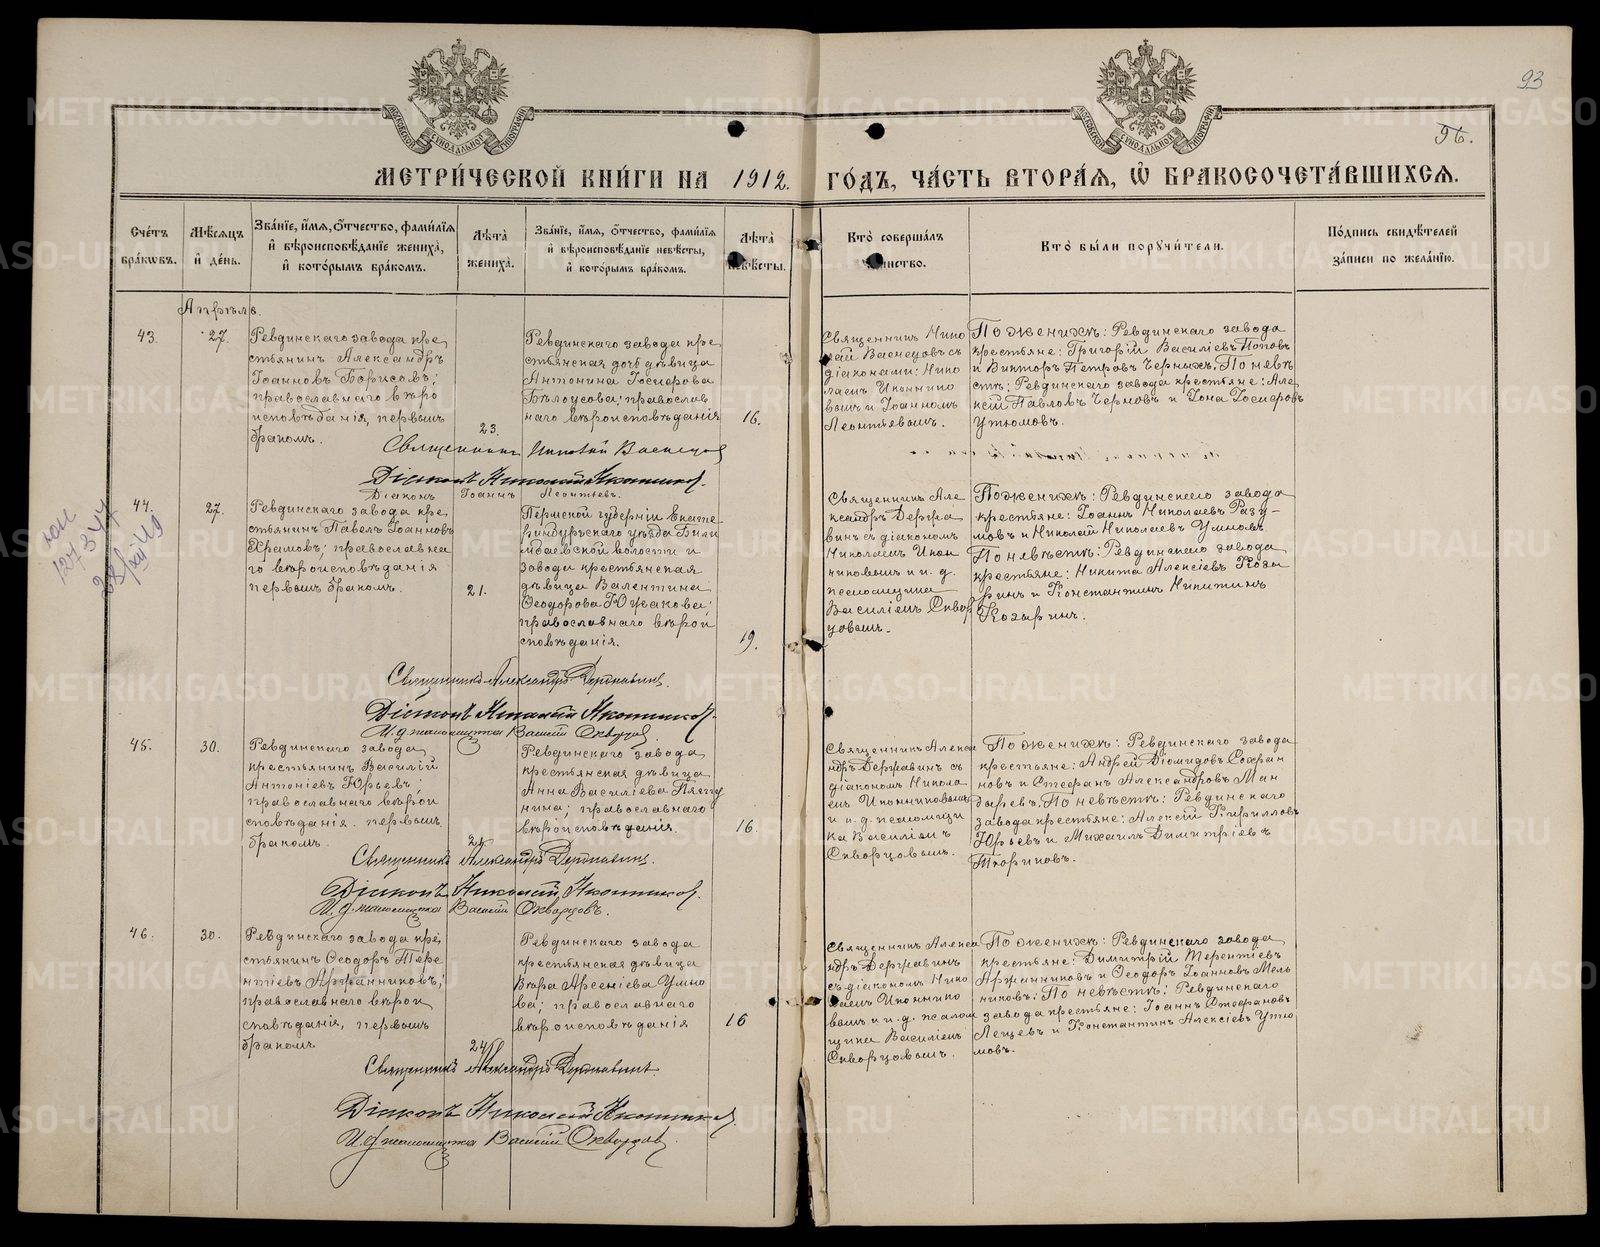 93
96.
МЕТРИ́ЧЕСКОЙ КНИ́ГИ НА 1912. ГО́ДЪ, ЧА́СТЬ ВТОРА́Я, Ѿ БРАКОСОЧЕТА́ВШИХСЯ.
Сче́тъ бра́кωвъ.
Мѣ́сяцъ и҆ де́нь.
Зва́нїе, и҆́мя, ѻ҆́тчество, фами́лїя
и҆ вѣроисповѣ́данїе жениха̀,
и҆ кото́рымъ бра́комъ.
Лѣ́та жениха̀.
Зва́нїе, и҆́мя, ѻ҆́тчество, фами́лїя
и҆ вѣроисповѣ́данїе невѣ́сты,
и҆ кото́рымъ бра́комъ.
Лѣ́та невѣ́сты.
Кто̀ соверша́лъ
таинство.
Кто̀ бы́ли порꙋчи́тели.
По́дпись свидѣ́телей
за́писи по жела́нїю.
Апрѣль.
43.
27.
Ревдинскаго завода кре
стьянинъ Александръ
Іоанновъ Борисовъ;
православнаго вѣро
исповѣданія, первымъ
бракомъ.
23.
Ревдинскаго завода кре
стьянская дочь дѣвица
Антонина Іосифова
Бѣлоусова; православ
наго вѣроисповѣданія
16.
Священникъ Нико
лай Васнецовъ съ
діаконами: Нико
лаемъ Иконнико
вымъ и Іоанномъ
Леонтьевымъ.
По женихѣ: Ревдинскаго завода
крестьяне: Григорій Василіевъ Поповъ
и Викторъ Петровъ Черныхъ. По невѣ
стѣ: Ревдинскаго завода крестьяне: Але
ксѣй Павловъ Черновъ и Іона Іосифовъ
Утюмовъ.
Священникъ Николай Васнецов
Діаконъ Николай Иконников.
Діаконъ Іоаннъ Леонтьевъ.
44.
27.
Ревдинскаго завода кре
стьянинъ Павелъ Іоанновъ
Храмовъ; православна
го вѣроисповѣданія
первымъ бракомъ.
21.
Пермской губерніи Екате
ринбургскаго уѣзда Били
мбаевской волости и
завода крестьянская
дѣвица Валентина
Ѳеодорова Южакова;
православнаго вѣрои
сповѣданія.
19.
Священникъ Але
ксандръ Держа
винъ съ діакономъ
Николаемъ Икон
никовымъ и и. д.
псаломщика
Василіемъ Сквор
цовымъ.
По женихѣ: Ревдинскаго завода
крестьяне: Іоаннъ Николаевъ Разу-
мовъ и Николай Николаевъ Умновъ
По невѣстѣ: Ревдинскаго завода
крестьяне: Никита Алексіевъ Козы
ринъ и Константинъ Никитинъ
Козыринъ.
Священникъ Александръ Державинъ.
Діаконъ Николай Иконников.
И. д. псаломщика Василій Скворцов.
45.
30.
Ревдинскаго завода
крестьянинъ Василій
Антоніевъ Юрьевъ,
православнаго вѣрои
сповѣданія. первымъ
бракомъ.
Ревдинскаго завода
крестьянская дѣвица
Анна Василіева
православнаго
вѣроисповѣданія.
16.
Священникъ Алекса
ндръ Державинъ съ
діакономъ Никола
емъ Иконниковымъ
и и. д. псаломщи
ка Василіемъ
Скворцовымъ.
По женихѣ: Ревдинскаго завода
крестьяне: Андрей Діомидовъ Сохран
новъ и Стефанъ Александровъ Ман
дыревъ. По невѣстѣ: Ревдинскаго
завода крестьяне: Алексій Кирилловъ
Юрьевъ и Михаилъ Димитріевъ
Священникъ Александръ Державинъ.
Діаконъ Николай Иконников.
И. д. псаломщика Василій Скворцовъ.
46.
30.
Ревдинскаго завода кре
стьянинъ Ѳеодоръ Тере
нтіевъ Аржанниковъ;
православнаго вѣрои
сповѣданія, первымъ
бракомъ
24
Ревдинскаго завода
крестьянская дѣвица
Вѣра Арсеніева Умно
ва; православнаго
вѣроисповѣданія
16
Священникъ Алекса
ндръ Державинъ
съ діакономъ Нико
лаемъ Иконнико
вымъ и и. д. псалом
щика Василіемъ
Скворцовымъ.
По женихѣ: Ревдинскаго завода
крестьяне: Димитрій Терентіевъ
Аржанниковъ и Ѳеодоръ Іоанновъ Мель
никовъ. По невѣстѣ: Ревдинскаго
завода крестьяне: Іоаннъ Стефановъ
Лещевъ и Константинъ Алексіевъ Утю
мовъ.
Священникъ Александръ Державинъ.
Діаконъ Николай Иконников.
И. д. псаломщика Василій Скворцов.
METRIKI.GASO-URAL.RU